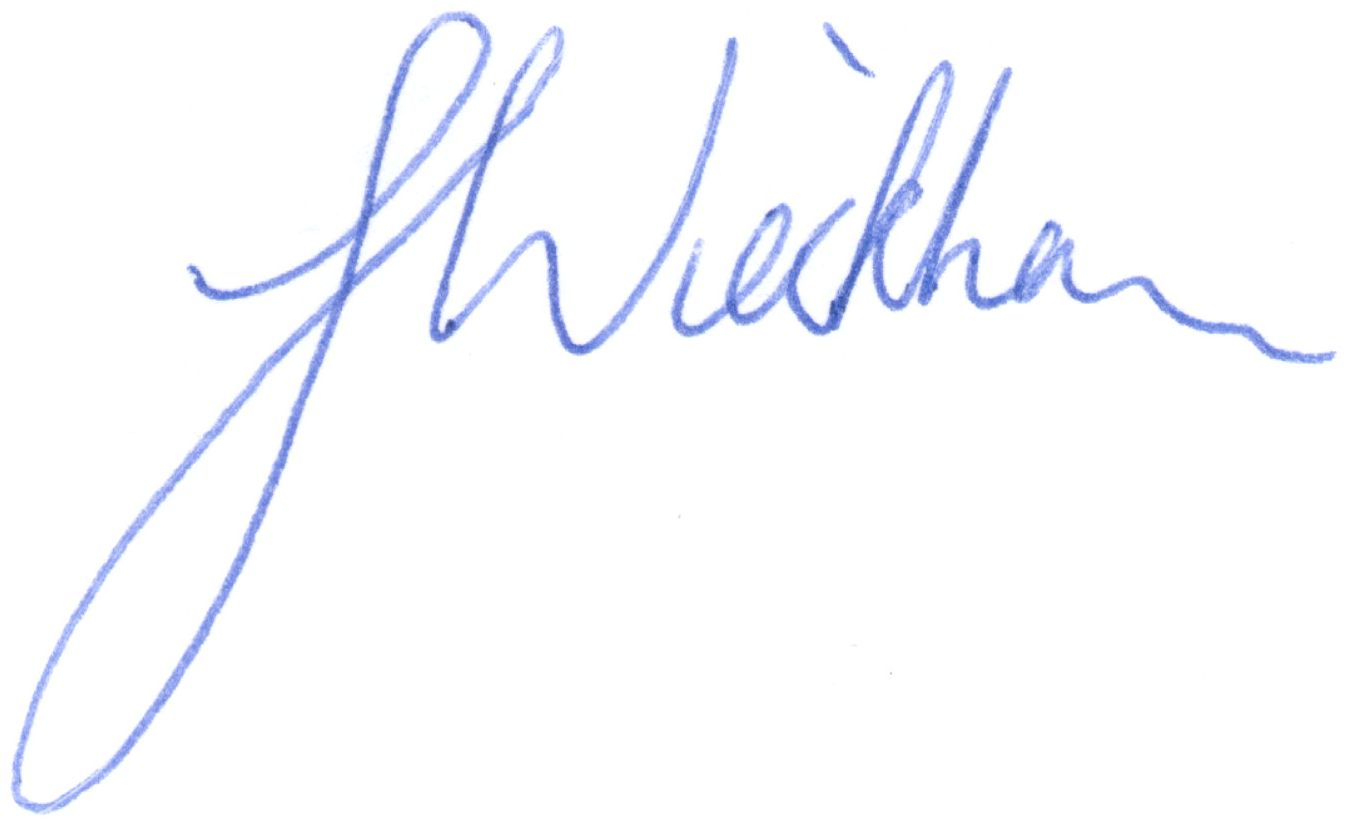 J Wieckham